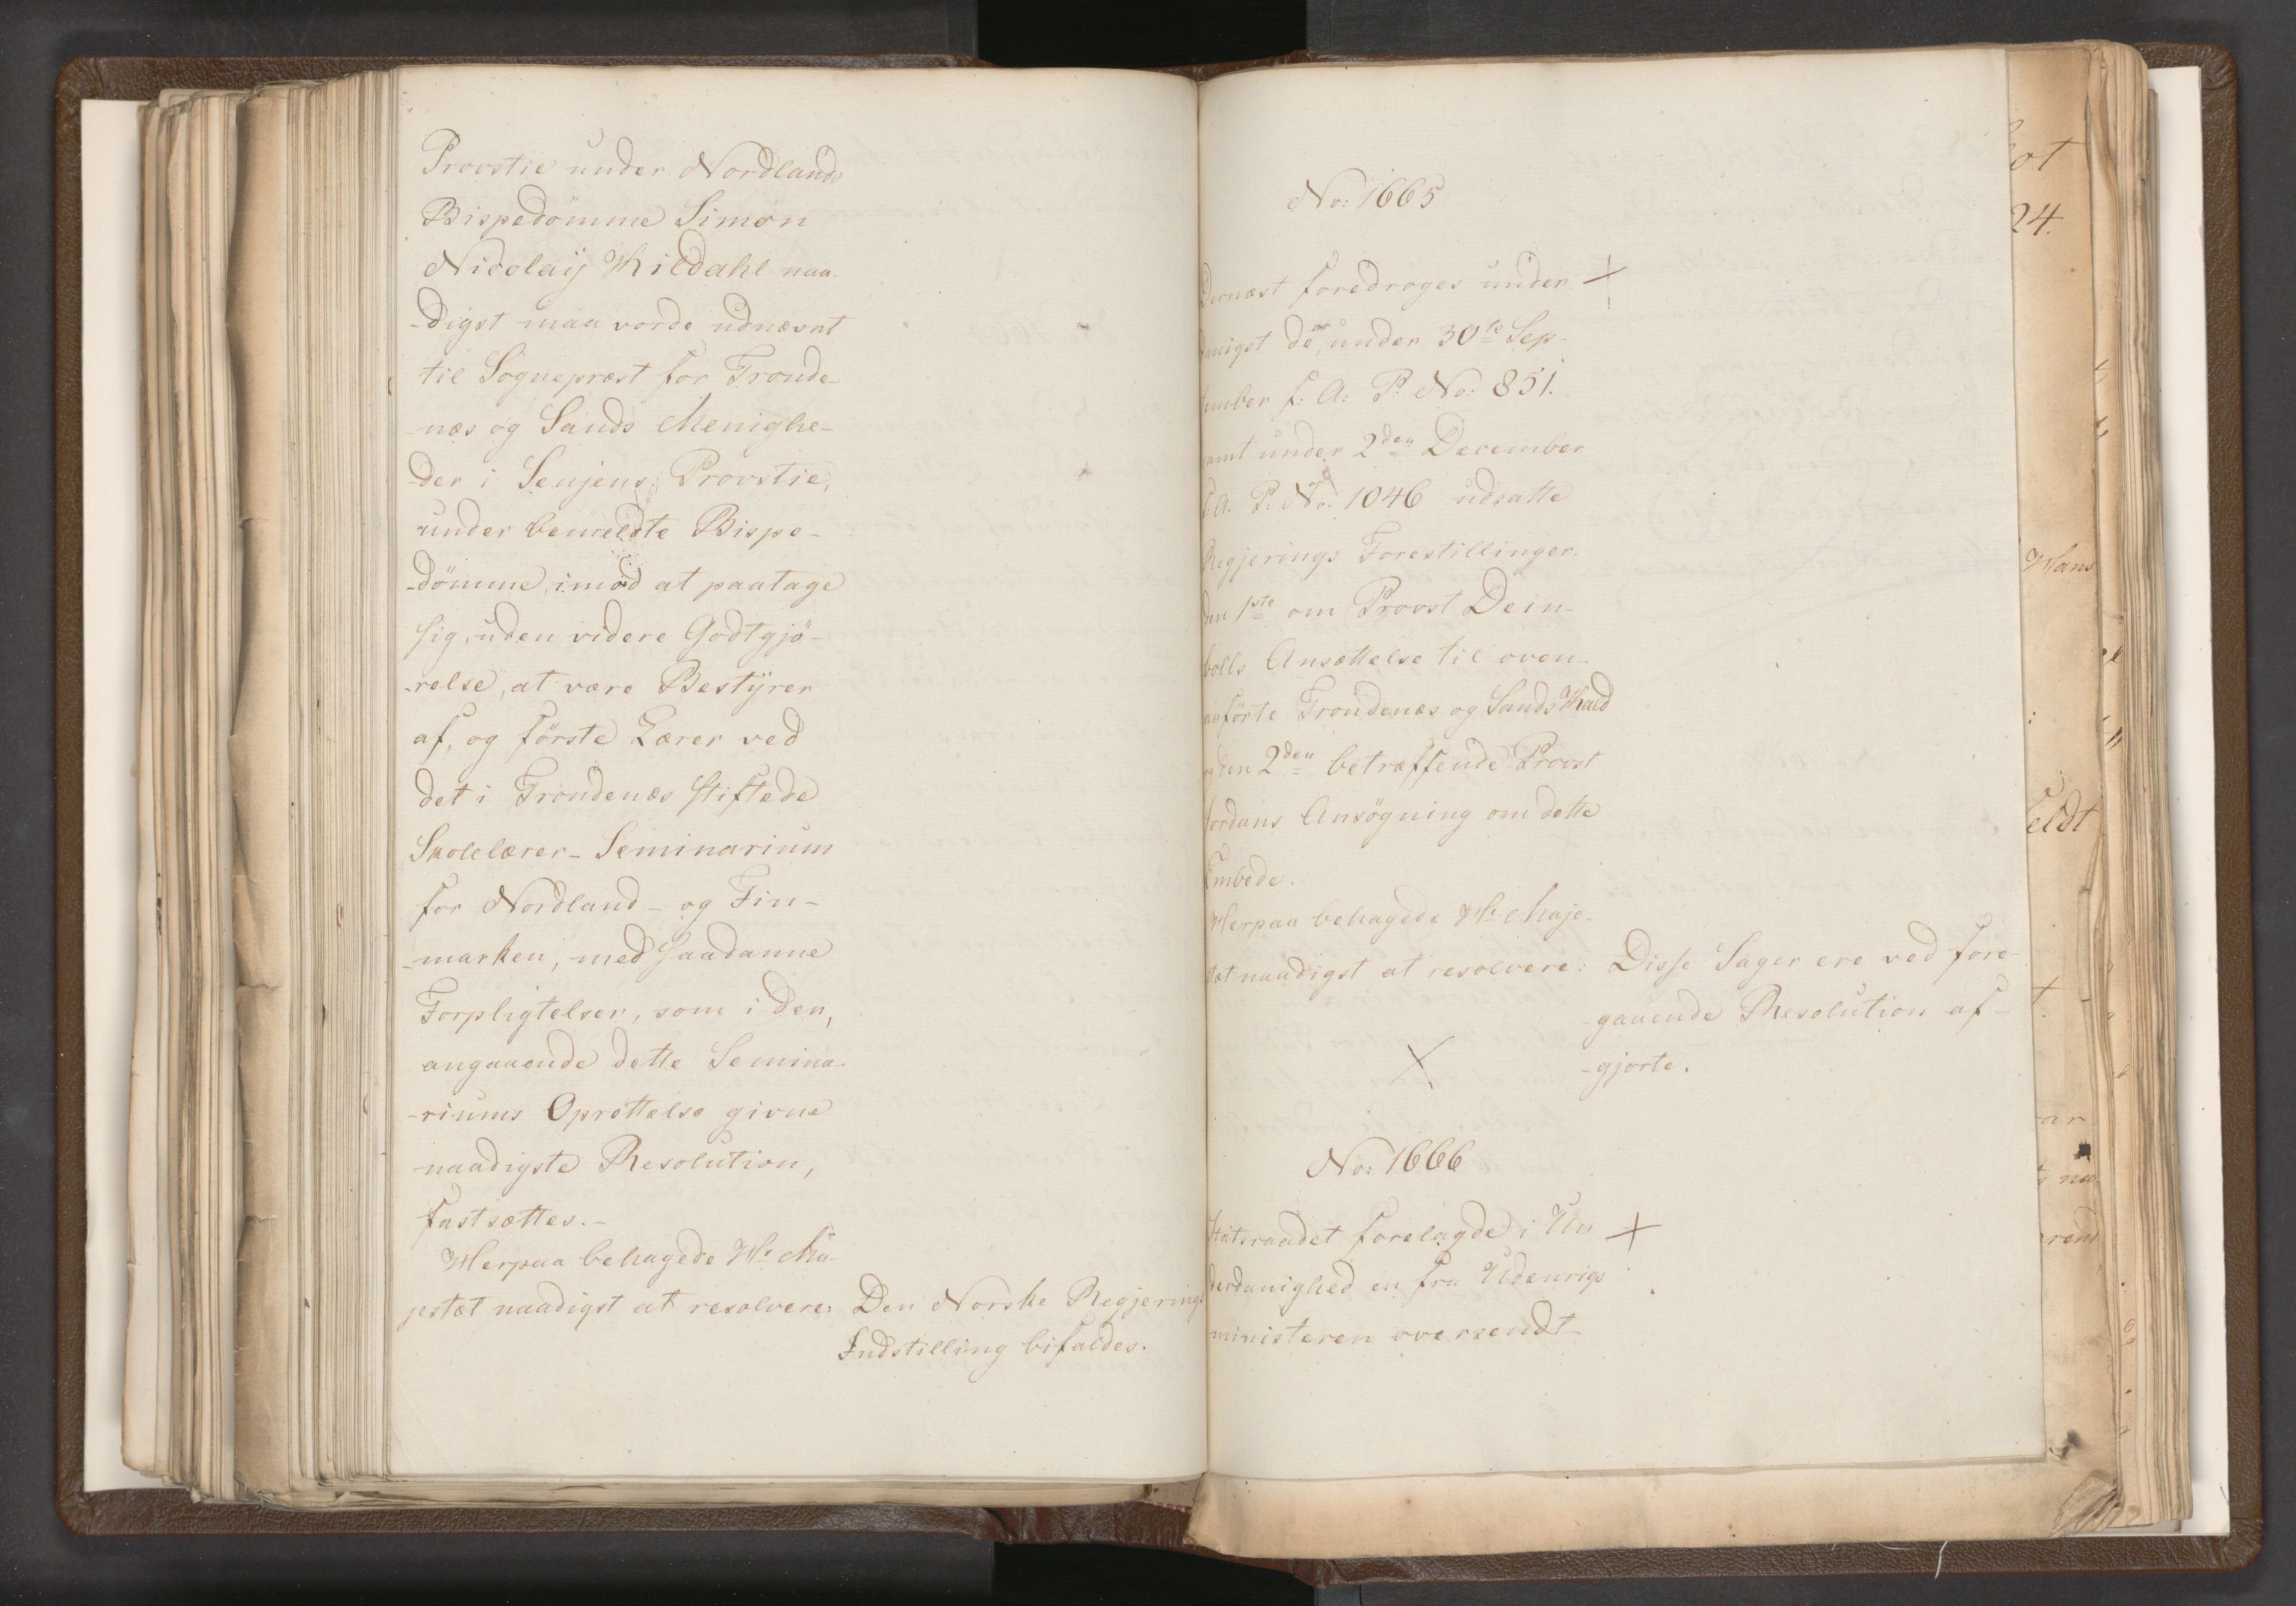 Provstie under Nordlands
Bispedömme Simon
Nicolaÿ Kildahl naa-
-digst maa vorde udnævnt
til Sognepræst for Tronde-
-næs og Sands Menighe-
-der i Senjens Provstie,
under bemeldte Bispe-
-dömme, imod at paatage
sig, uden videre Godtgjö-
-relse, at være Bestÿrer
af, og förste Lærer ved
det i Trondenæs stiftede
Skolelærer-Seminarium
for Nordland- og Fin-
-marken, med saadanne
Forpligtelser, som i den,
angaaende dette Semina-
-riums Oprettelse givne
naadigste Resolution,
fastsættes.-
Herpaa behagede Hs Ma-
jestæt naadigst at resolvere: Den Norske Regjerings
Indstilling bifaldes.
No: 1665
Dernæst foredroges under-
danigst de, under 30te Sep-
tember f: A: P: No: 851.
samt under 2den December
f: A. P: No: 1046 udsatte
Regjerings Forestillinger.
den 1ste om Provst Dein-
bolls Ansættelse til oven-
anförte Trondenæs og Sands Kald
og den 2den betræffende Provst
Jordans Ansögning om dette
Embede.
Herpaa behagede Hs Maje-
stæt naadigst at resolvere: Disse Sager ere ved fore-
-gaaende Resolution af-
-gjorte.
No: 1666
Statsraadet forelagde i Un
derdanighed en fra Udenrigs
ministeren oversendt
ot
24.
Hans
eldt
ar